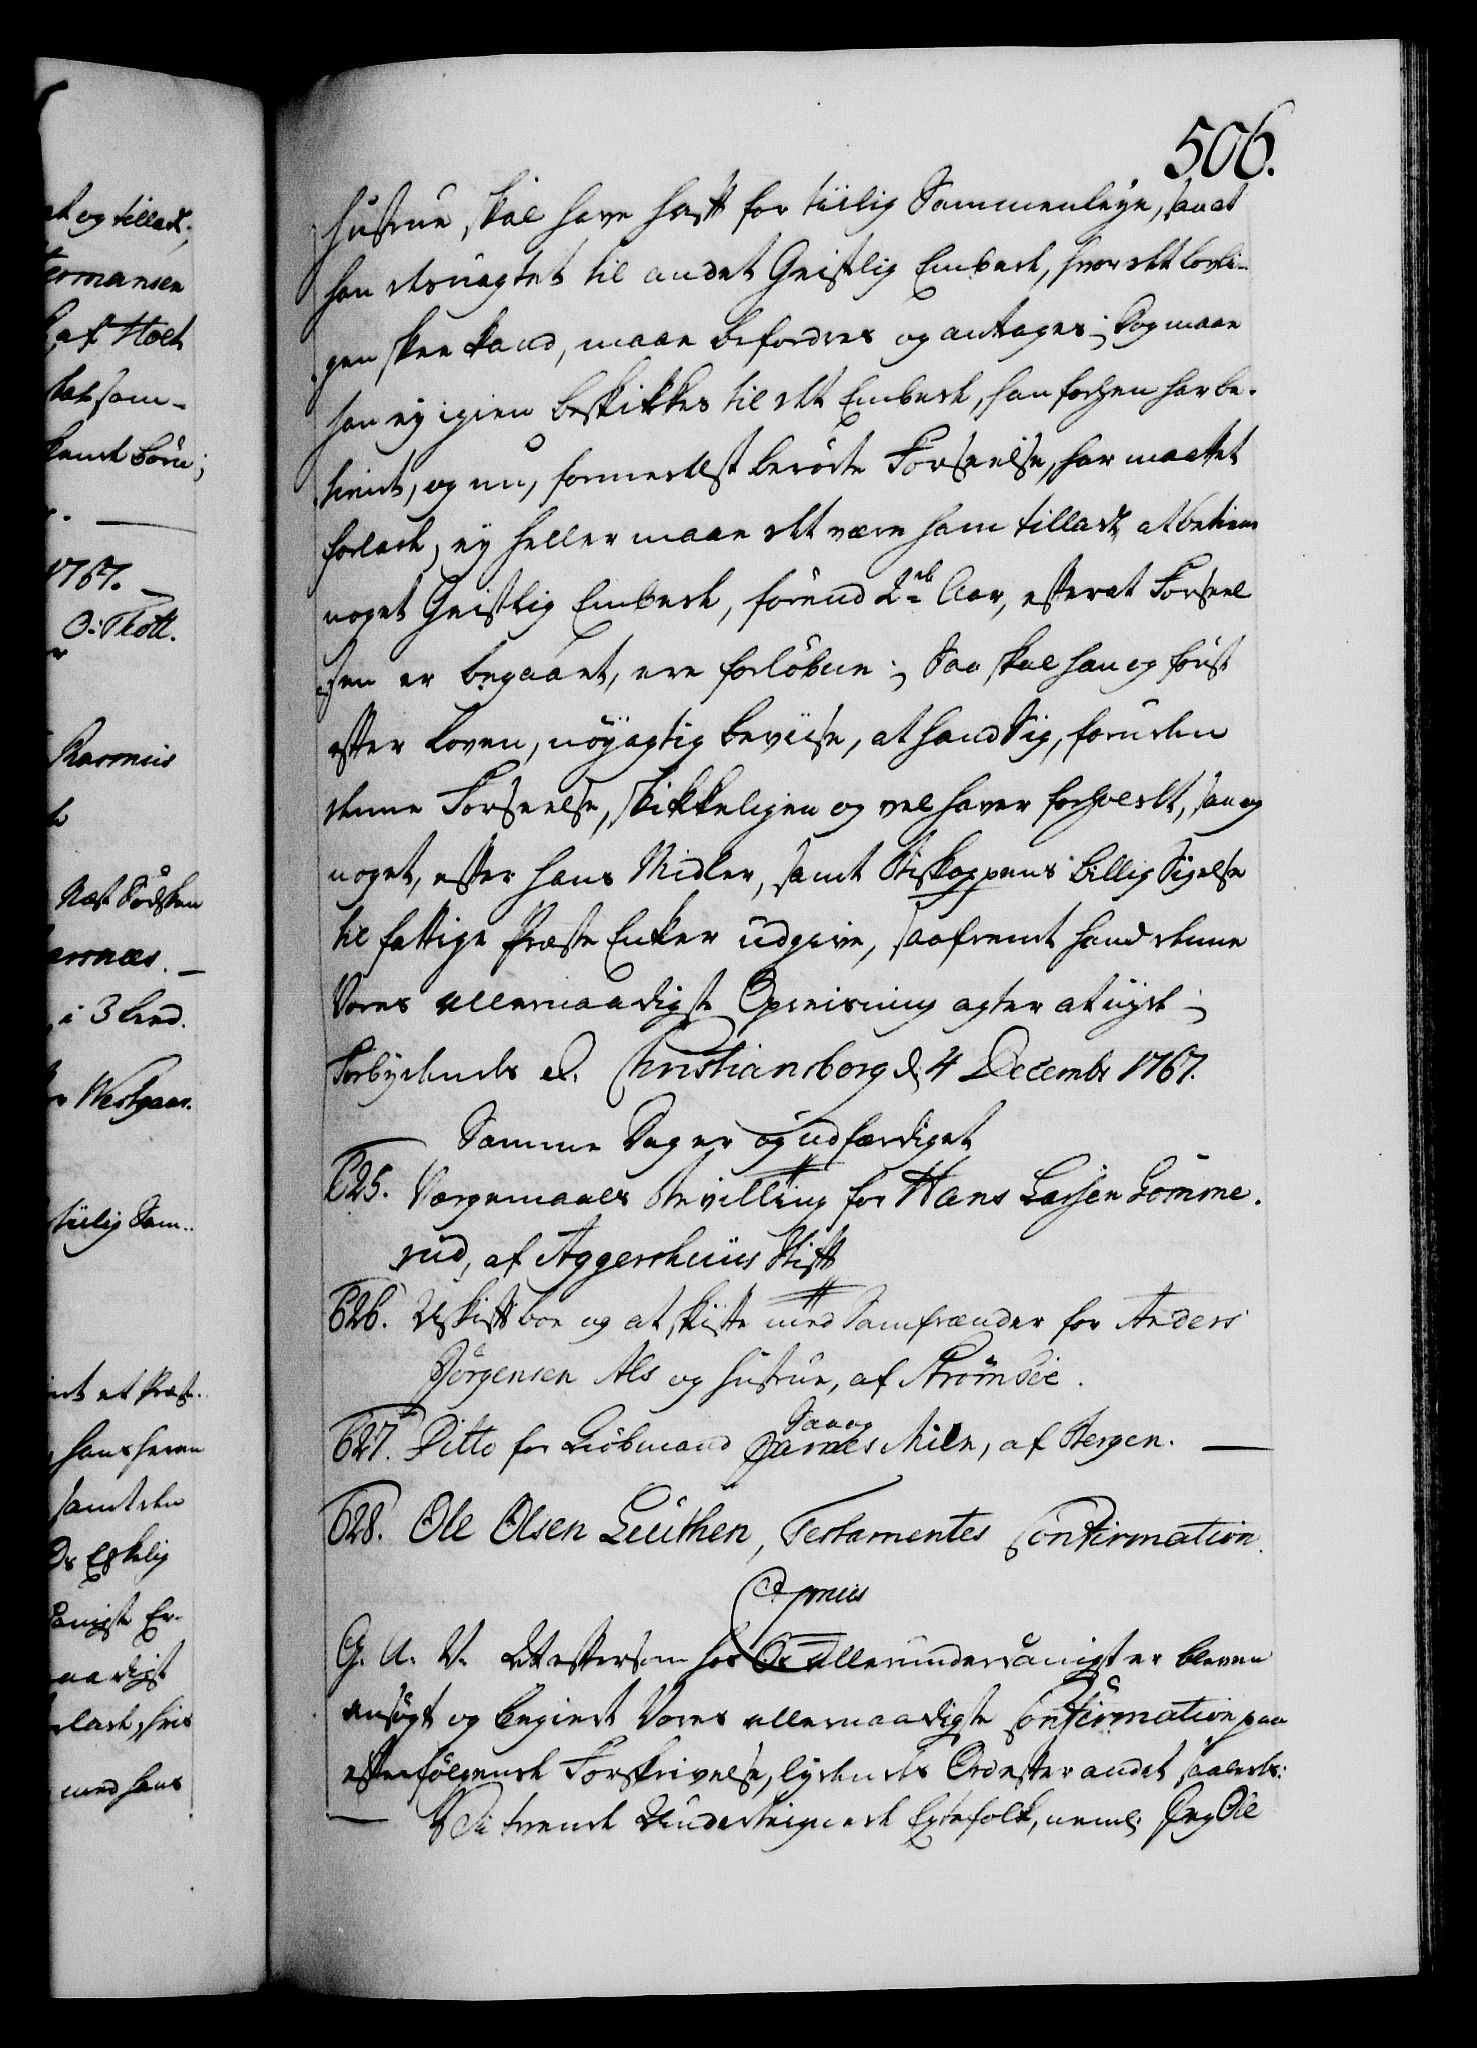 506.
Hustrue, skal have havt for tiilig Sammenleye, saa at
han desuagtet til andet Geistlig Embede, hvor det lovli-
gen skee kand, maae befordres og antages; Dog maae
han ey igien beskikkes til det Embede, han forhen har be-
tient, og nu, formedelst berörte Forseelse, har maattet
forlade, ey heller maae det være ham tilladt, at betiene
noget Geistlig Embede, förend 2de Aar, efterat Forseel
sen er begaaet, ere forlöbne; Saa skal han og först
efter Loven, nöyagtig beviise, at hand Sig, foruden
denne Forseelse, skikkeligen og vel haver forholdt, saa og
noget, efter hans Midler, samt Biskoppens billig Sigelse
til fattige Præste Enker udgive, saafremt hand denne
Vores allernaadigste Opreisning agter at nyde;
Forbydendes &c. Christiansborg d. 4 Decembr 1767.
Samme Dag er og udfærdiget
625. Værgemaals Bevilling for Hans Larsen Lomme-
rud, af Aggershuus Stift
626. Uskift boe og at skifte med Samfrænder for Anders
Jörgensen Als og Hustrue, af Strömsöe.
627. Ditto for Kiöbmand James Miln, af Bergen.
Saa og
628. Ole Olsen Leuthen, Testamentes Confirmation.
Os
G. A. V. at eftersom hos Os allerunderdanigst er bleven
ansögt og begiert Vores allernaadigste Confirmation paa
efterfölgende Forskrivelse, lydendes Ord efter andet saaledes:
Vi tvende Undertegnede Egtefolk, neml. Jeg Ole
at og tillade;
ermansen
af Holt
samt Börn;
1767.
O: Thott.
Rasmus
Næst Södsken
i 3 Leed.
Westgaar.
tiilig Sam-
et Præste-
samt den
med hans